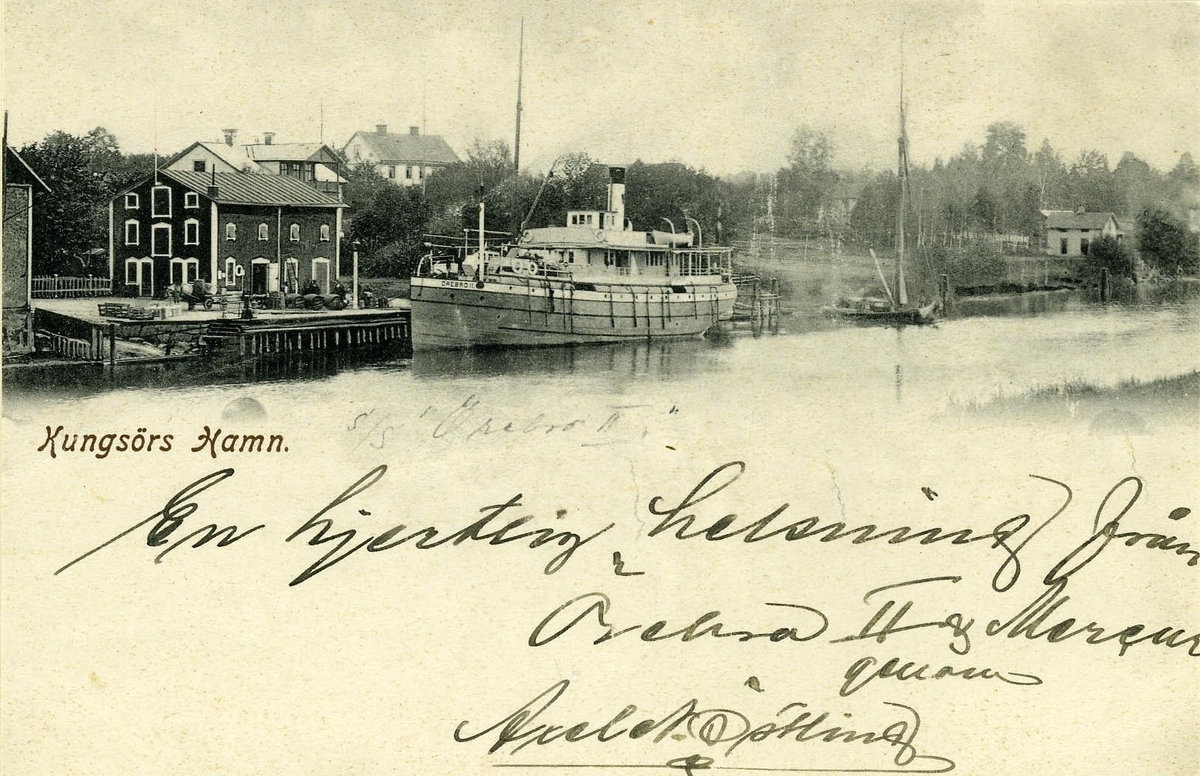 ÖREBRO II
Kungsörs Hamn.
s/s "Örebro II."
En hjertlig helsning från
Örebro II & Mercur
genom
Axel